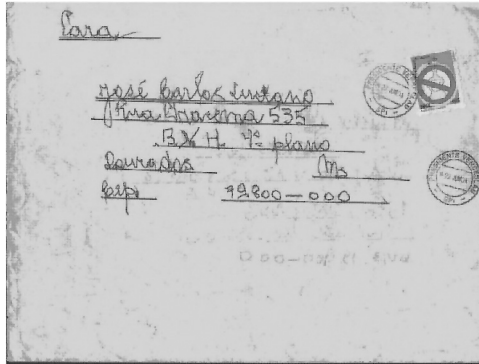 Para
José Carlos Lustano
Rua Iparema 535
B N H 4º plano
Dourados Ms
Cep. 79800-000